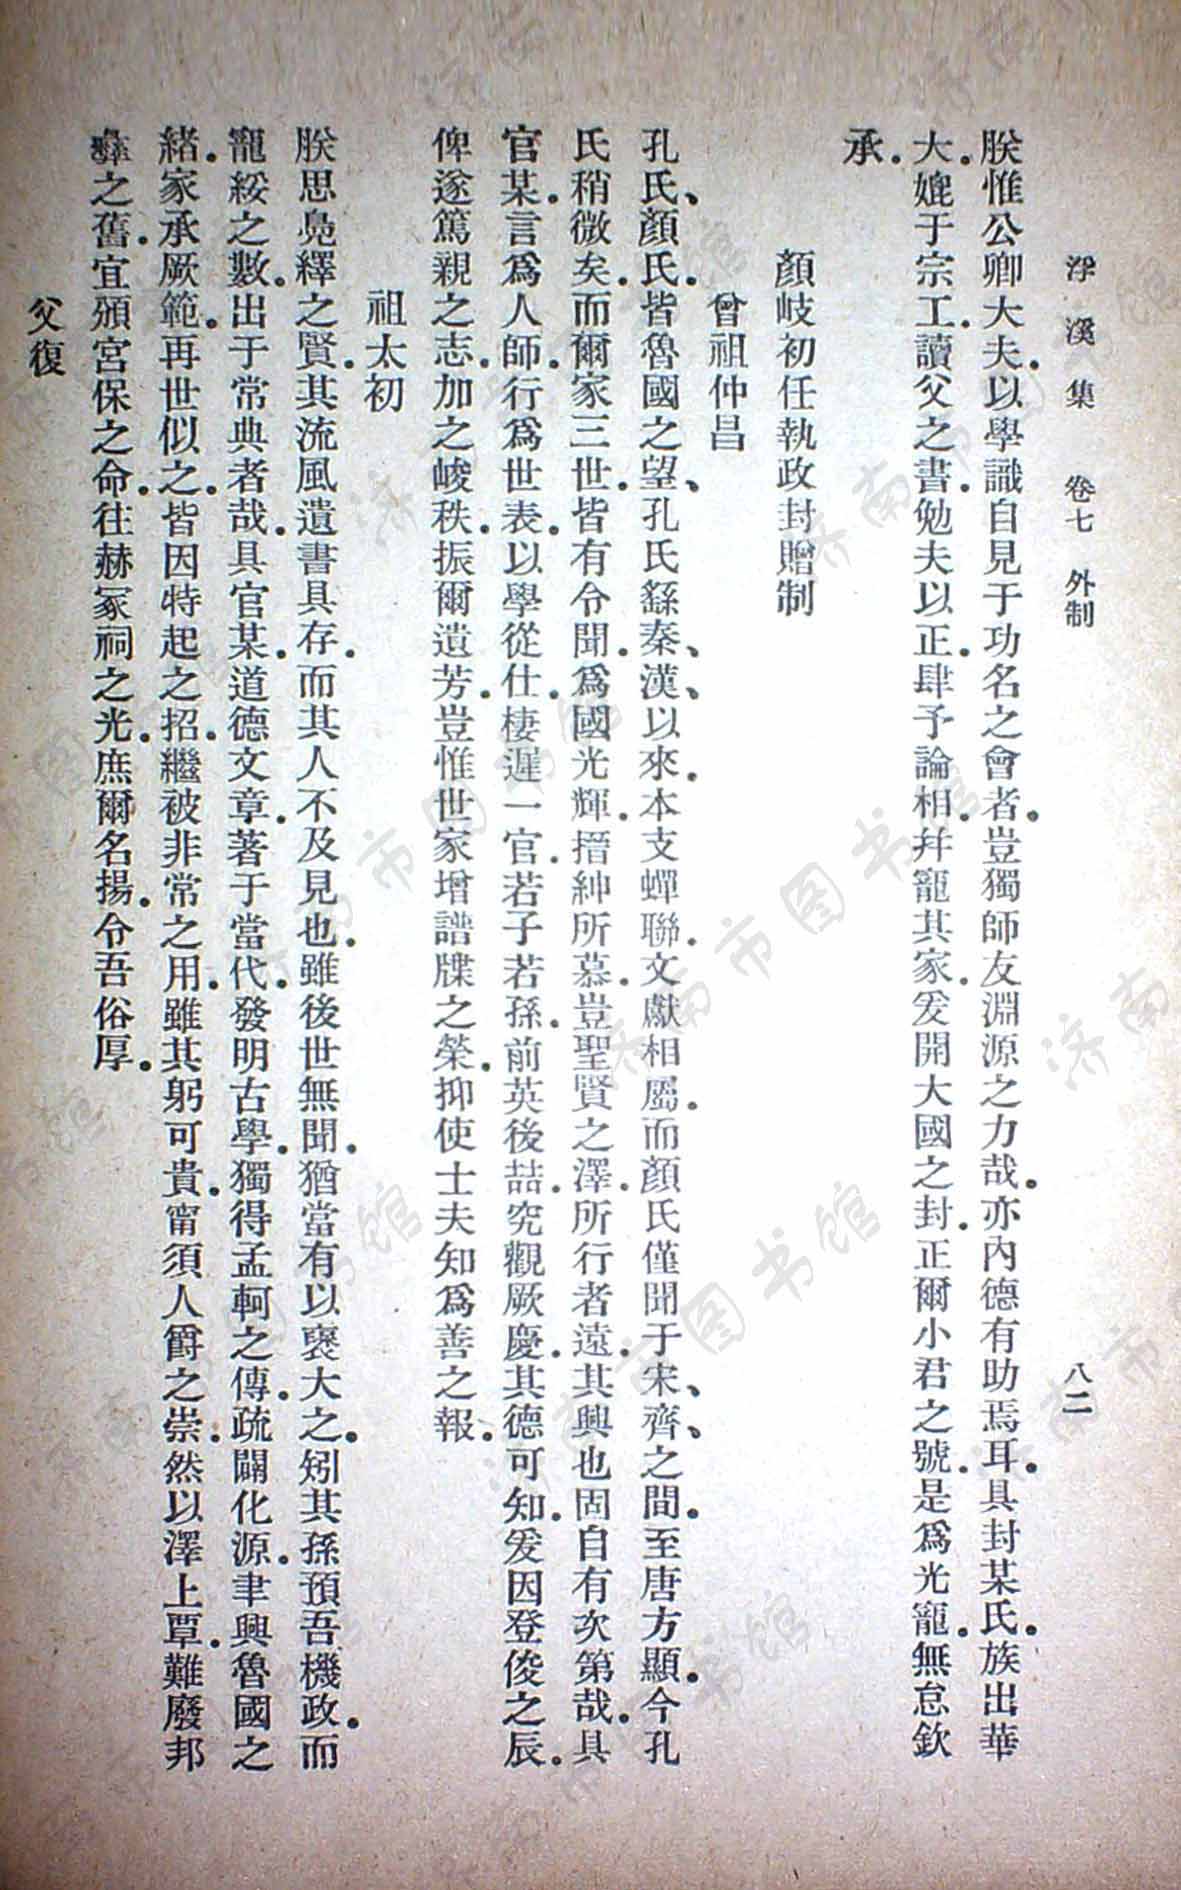 浮溪集 卷七 外制 八二
朕惟公卿大夫.以學識自見于功名之會者.豈獨師友淵源之力哉.亦內德有助焉耳.具封某氏.族出華
大.媲于宗工.讀父之書.勉夫以正.肆予論相.幷寵其家.爰開大國之封.正爾小君之號.是爲光寵.無怠欽
承.
顏岐初任執政封贈制
曾祖仲昌
孔氏、顏氏.皆魯國之望、孔氏繇秦、漢、以來.本支蟬聯.文獻相屬.而顏氏僅聞于宋、齊、之間.至唐方顯.今孔
氏稍微矣.而爾家三世.皆有令聞.爲國光輝.搢紳所慕.豈聖賢之澤.所行者遠.其興也固自有次第哉.具
官某.言爲人師.行爲世表.以學從仕.棲遲一官.若子若孫.前英後喆.究觀厥慶.其德可知.爰因登俊之辰.
俾遂篤親之志.加之峻秩.振爾遺芳.豈惟世家增譜牒之榮.抑使士夫知爲善之報.
祖太初
朕思鳧繹之賢.其流風遺書具存.而其人不及見也.雖後世無聞.猶當有以襃大之.矧其孫預吾機政.而
寵綏之數.出于常典者哉.具官某.道德文章.著于當代.發明古學.獨得孟軻之傳.疏闢化源.聿興魯國之
緒.家承厥範.再世似之.皆因特起之招.繼被非常之用.雖其躬可貴.甯須人爵之崇.然以澤上覃.難廢邦
彝之舊.宜頒宮保之命.往赫冢祠之光.庶爾名揚.令吾俗厚.
父復